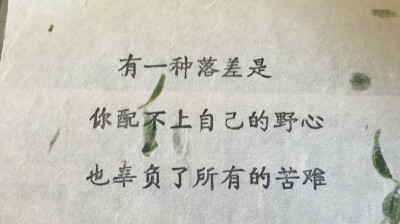 有一种落差是
你配不上自己的野心
也辜负了所有的苦难